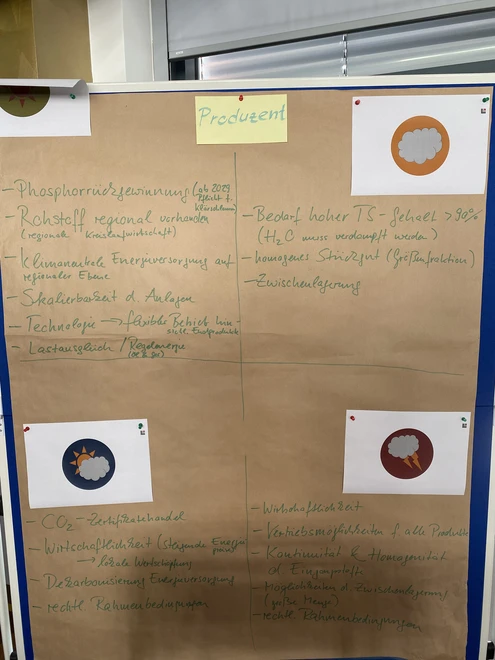 Produzent
- Phosphorrückgewinnung (ab 2029
Pflicht f.
Klärschlamm)
- Rohstoff regional vorhanden
(regionale Kreislaufwirtschaft)
- Klimaneutrale Energieversorgung auf
regionaler Ebene
- Skalierbarkeit d. Anlagen
- Technologie → flexibler Betrieb hin-
sichtl. Endprodukte
- Lastausgleich / Regelenergie
- Bedarf hoher TS-Gehalt >90%
(H₂C muss verdampft werden)
- homogenes Stückgut (Größenfraktion)
- Zwischenlagerung
- CO₂-Zertifikatehandel
- Wirtschaftlichkeit (steigende Energie-
preise)
→ lokale Wertschöpfung
- Dekarbonisierung Energieversorgung
- rechtl. Rahmenbedingungen
- Wirtschaftlichkeit
- Vertriebsmöglichkeiten f. alle Produkte
- Kontinuität & Homogenität
d. Eingangsstoffe
- Möglichkeiten d. Zwischenlagerung
(große Menge)
- rechtl. Rahmenbedingungen